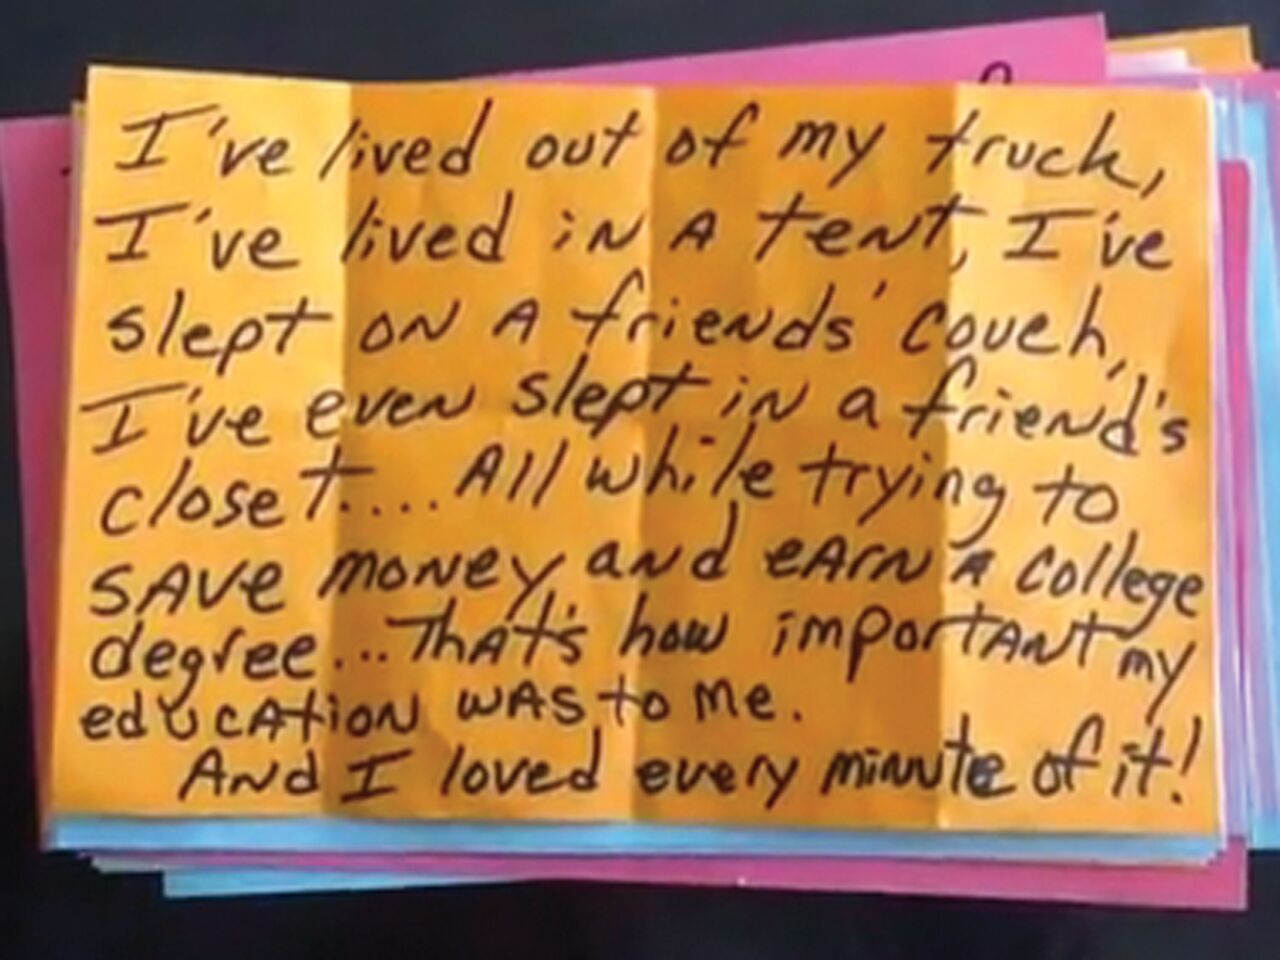 I've lived out of my truck,
I've lived in a tent, I've
slept on a friends' couch,
I've even slept in a friend's
closet.... All while trying to
save money and earn a college
degree... That's how important my
education was to me.
And I loved every minute of it!